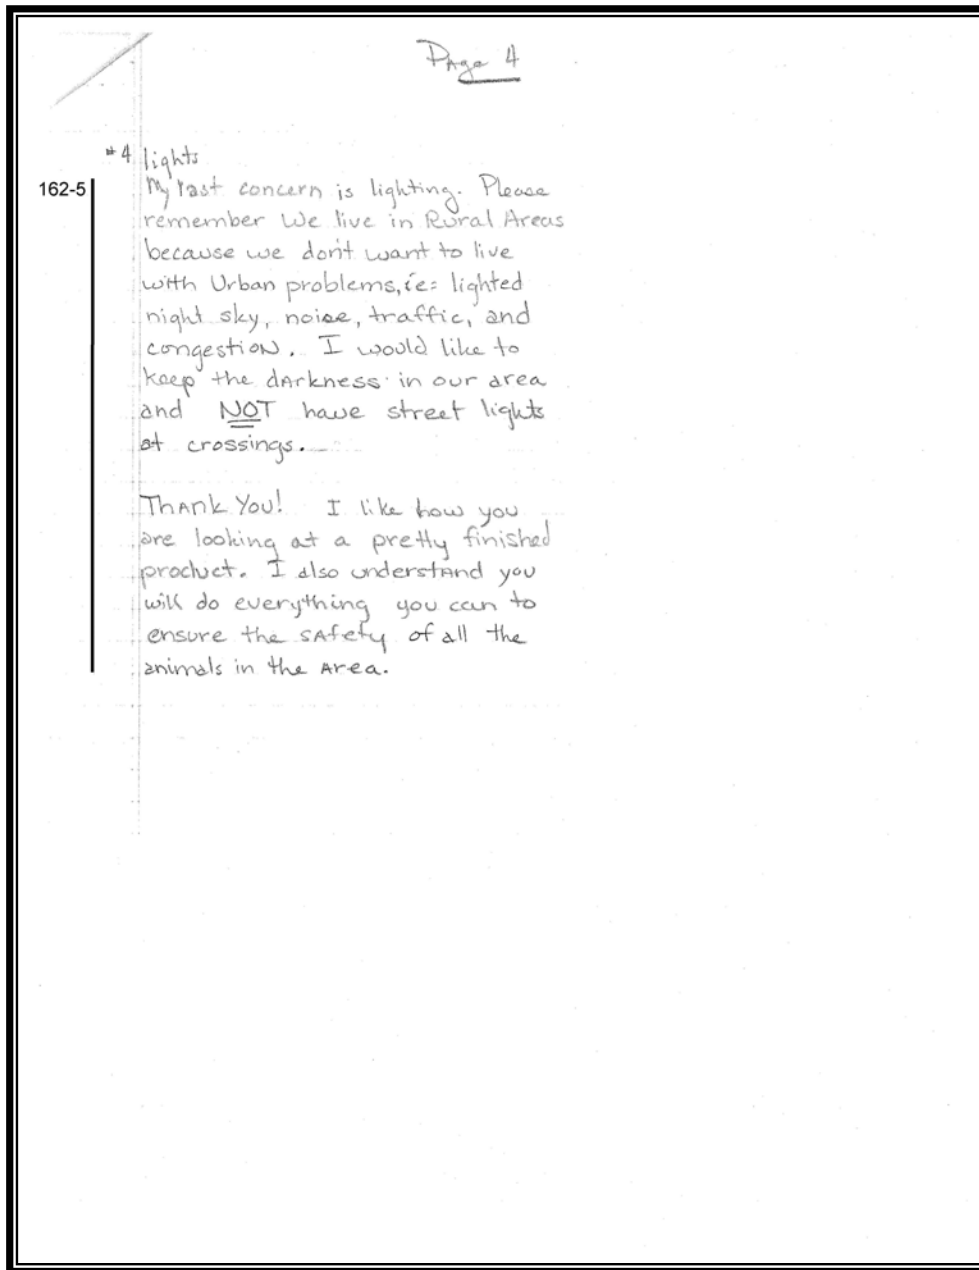 Page 4
#4 lights
162-5
My last concern is lighting. Please
remember We live in Rural Areas
because we don't want to live
with Urban problems, ie: lighted
night sky, noise, traffic, and
congestion. I would like to
keep the darkness in our area
and NOT have street lights
at crossings.
Thank You! I like how you
are looking at a pretty finished
product. I also understand you
will do everything you can to
ensure the safety of all the
animals in the Area.